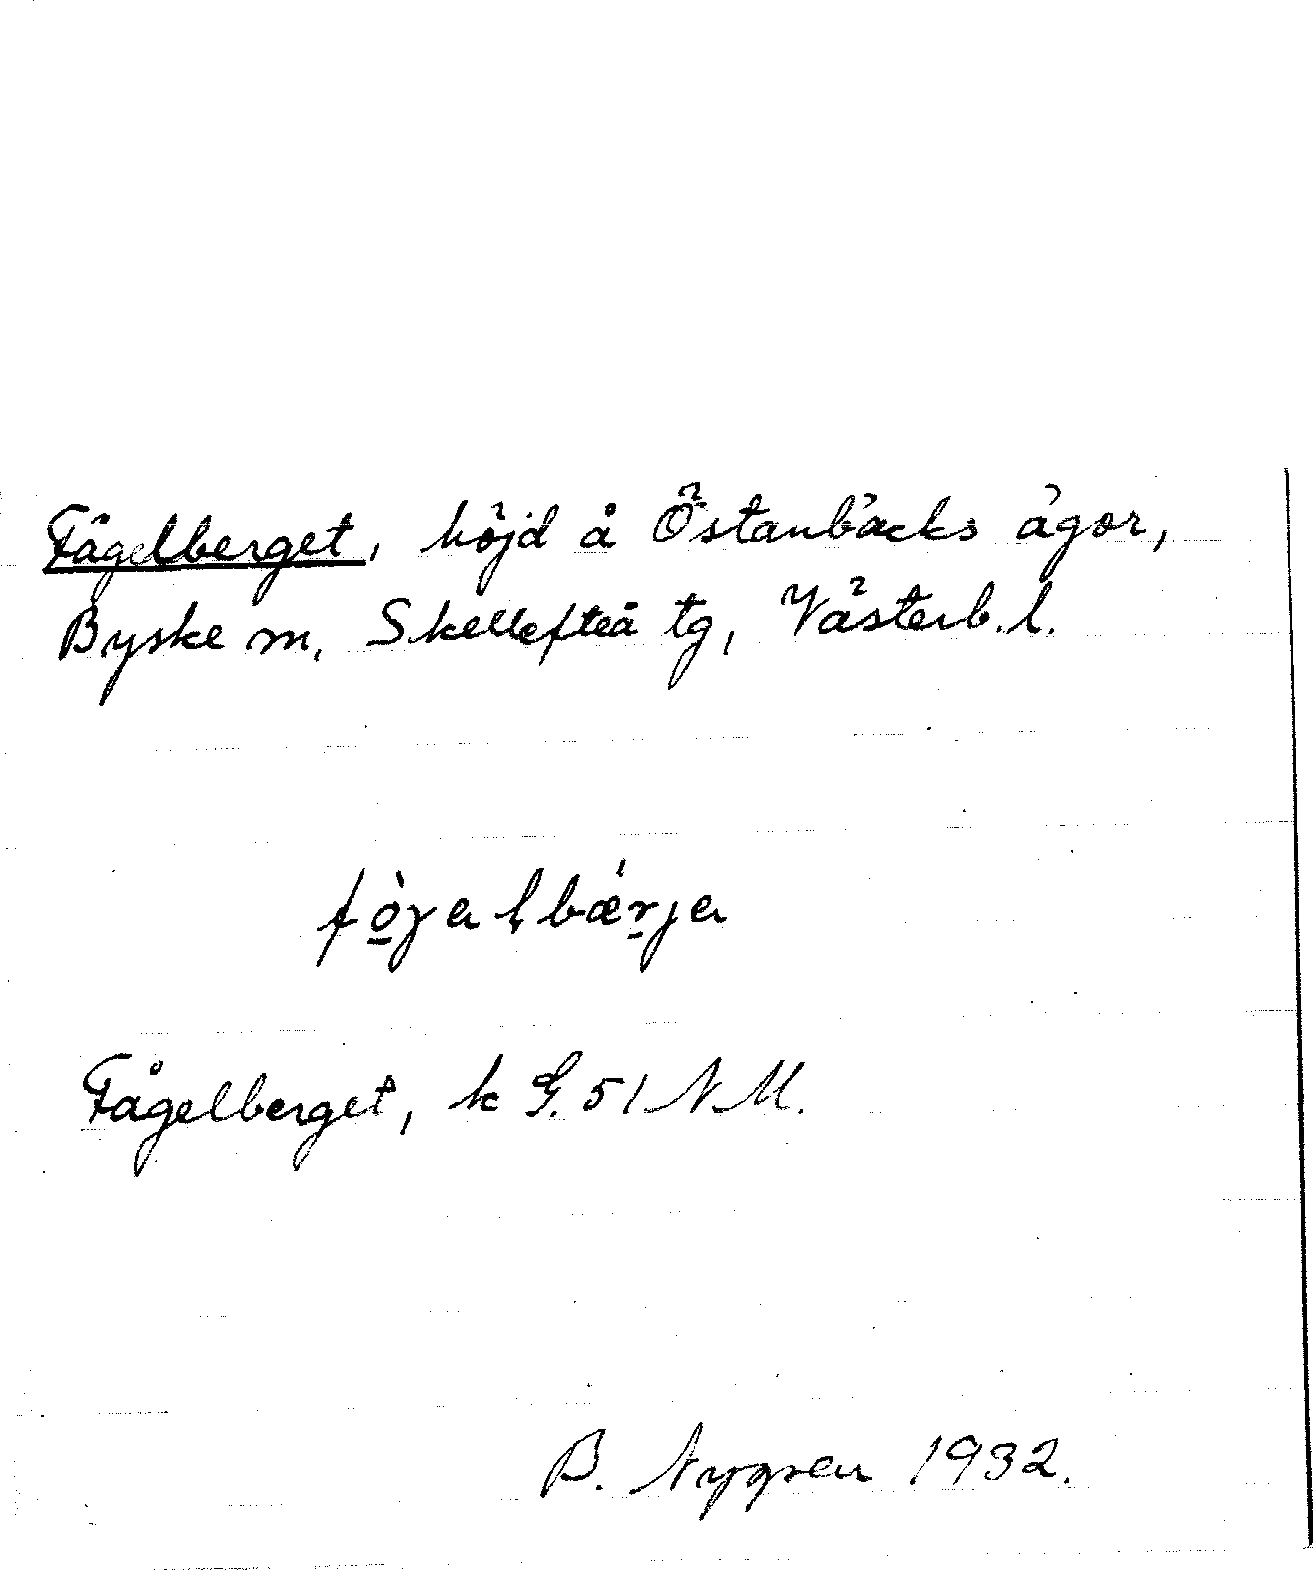 Fågelberget, höjd å Östanbäcks ägor,
Byske sn, Skellefteå tg, Västerb. l.
fò̠ɣalbæ̀r̠ja
Fågelberget, k G. 51 N.M.
B. Nygren 1932.